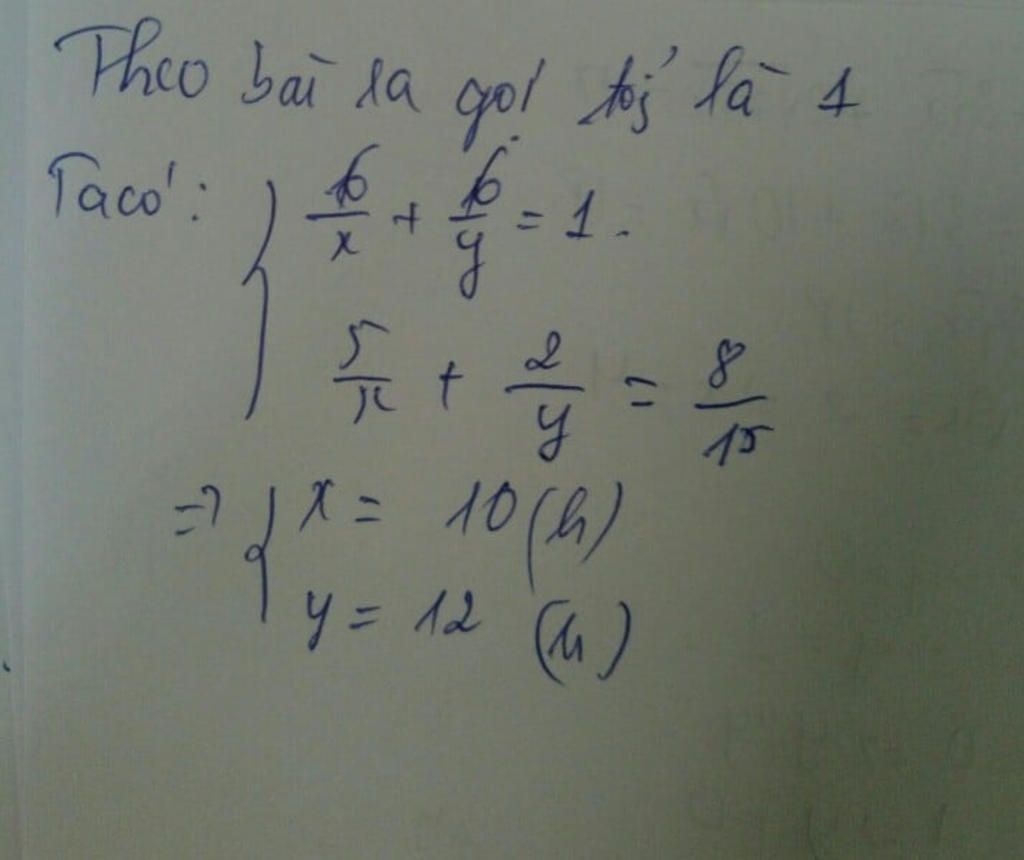 Theo bài ra gọi toj là 1
Ta có: { 6/x + 6/y = 1.
5/x + 2/y = 8/15
=> { x = 10 (h)
y = 12 (h)